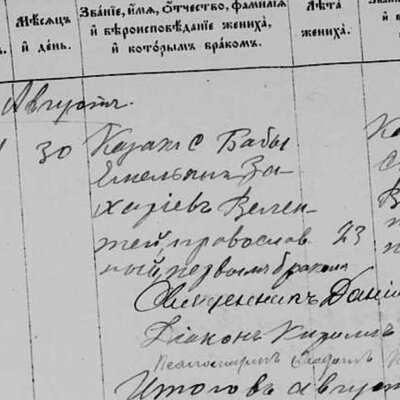 Мѣсяцъ и день.
Званіе, имя, отчество, фамилія и вѣроисповѣданіе жениха, и которымъ бракомъ.
Лѣта жениха.
Августъ.
30 Казакъ с Бабы
Емельянъ За-
харіевъ Велен-
тей, православ 23
ный, первымъ бракомъ
Священникъ Даніи
Діаконъ
Итого въ август